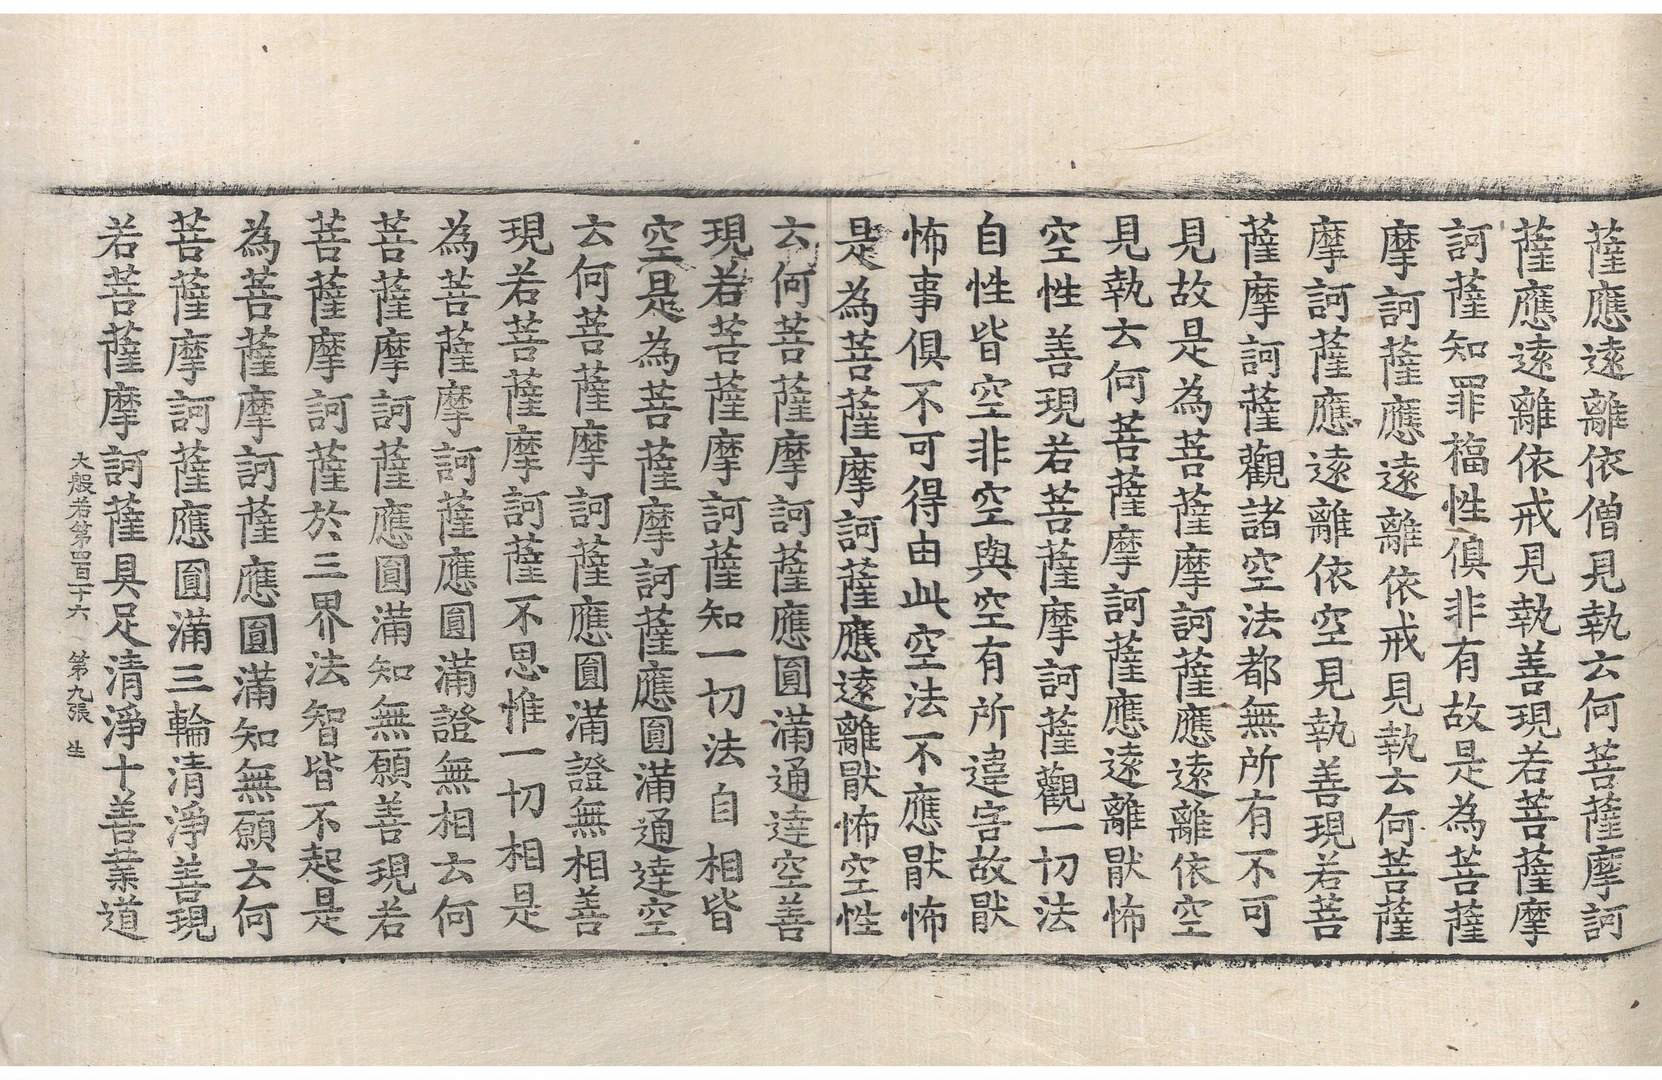 薩應遠離依僧見執云何菩薩摩訶
薩應遠離依戒見執善現若菩薩摩
訶薩知罪福性俱非有故是為菩薩
摩訶薩應遠離依戒見執云何菩薩
摩訶薩應遠離依空見執善現若菩
薩摩訶薩觀諸空法都無所有不可
見故是為菩薩摩訶薩應遠離依空
見執云何菩薩摩訶薩應遠離猒怖
空性善現若菩薩摩訶薩觀一切法
自性皆空非空與空有所違害故猒
怖事俱不可得由此空法不應猒怖
是為菩薩摩訶薩應遠離猒怖空性
云何菩薩摩訶薩應圓滿通達空善
現若菩薩摩訶薩知一切法自相皆
空是為菩薩摩訶薩應圓滿通達空
云何菩薩摩訶薩應圓滿證無相善
現若菩薩摩訶薩不思惟一切相是
為菩薩摩訶薩應圓滿證無相云何
菩薩摩訶薩應圓滿知無願善現若
菩薩摩訶薩於三界法智皆不起是
為菩薩摩訶薩應圓滿知無願云何
菩薩摩訶薩應圓滿三輪清淨善現
若菩薩摩訶薩具足清淨十善業道
大般若第四百十六 第九張 生